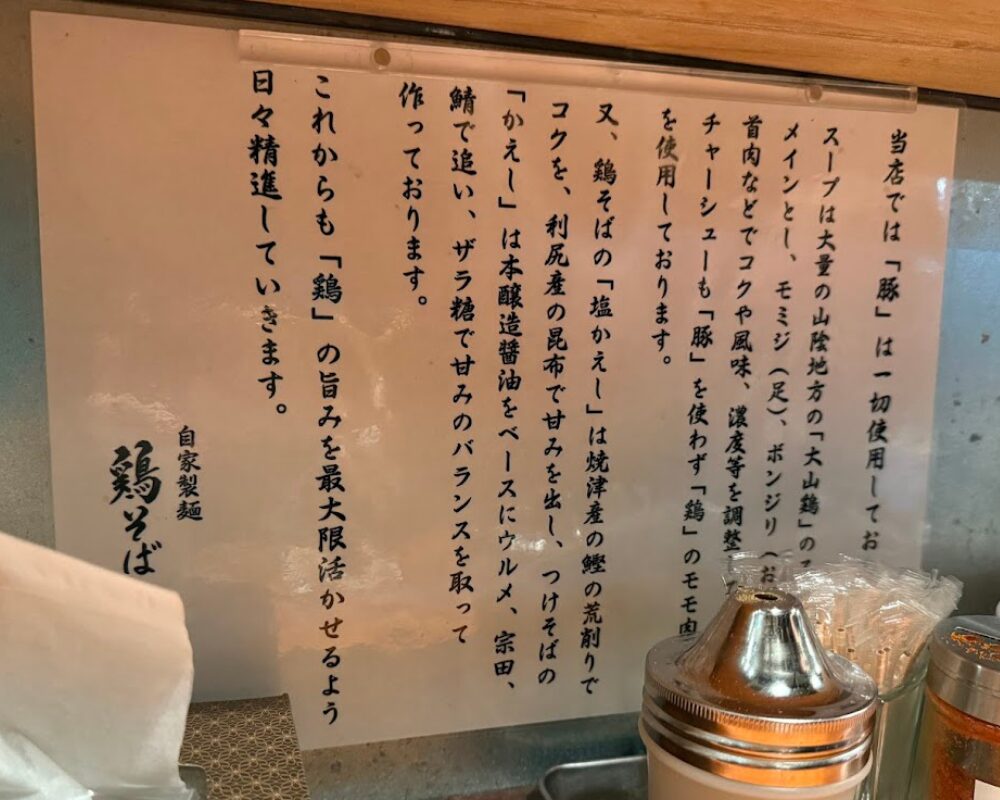 当店では「豚」は一切使用してお
スープは大量の山陰地方の「大山鶏」の
メインとし、モミジ（足）、ボンジリ（お
首肉などでコクや風味、濃度等を調整
チャーシューも「豚」を使わず「鶏」のモモ肉
を使用しております。
又、鶏そばの「塩かえし」は焼津産の鰹の荒削りで
コクを、利尻産の昆布で甘みを出し、つけそばの
「かえし」は本醸造醤油をベースにウルメ、宗田、
鯖で追い、ザラ糖で甘みのバランスを取って
作っております。
これからも「鶏」の旨みを最大限活かせるよう
日々精進していきます。
自家製麺
鶏そば